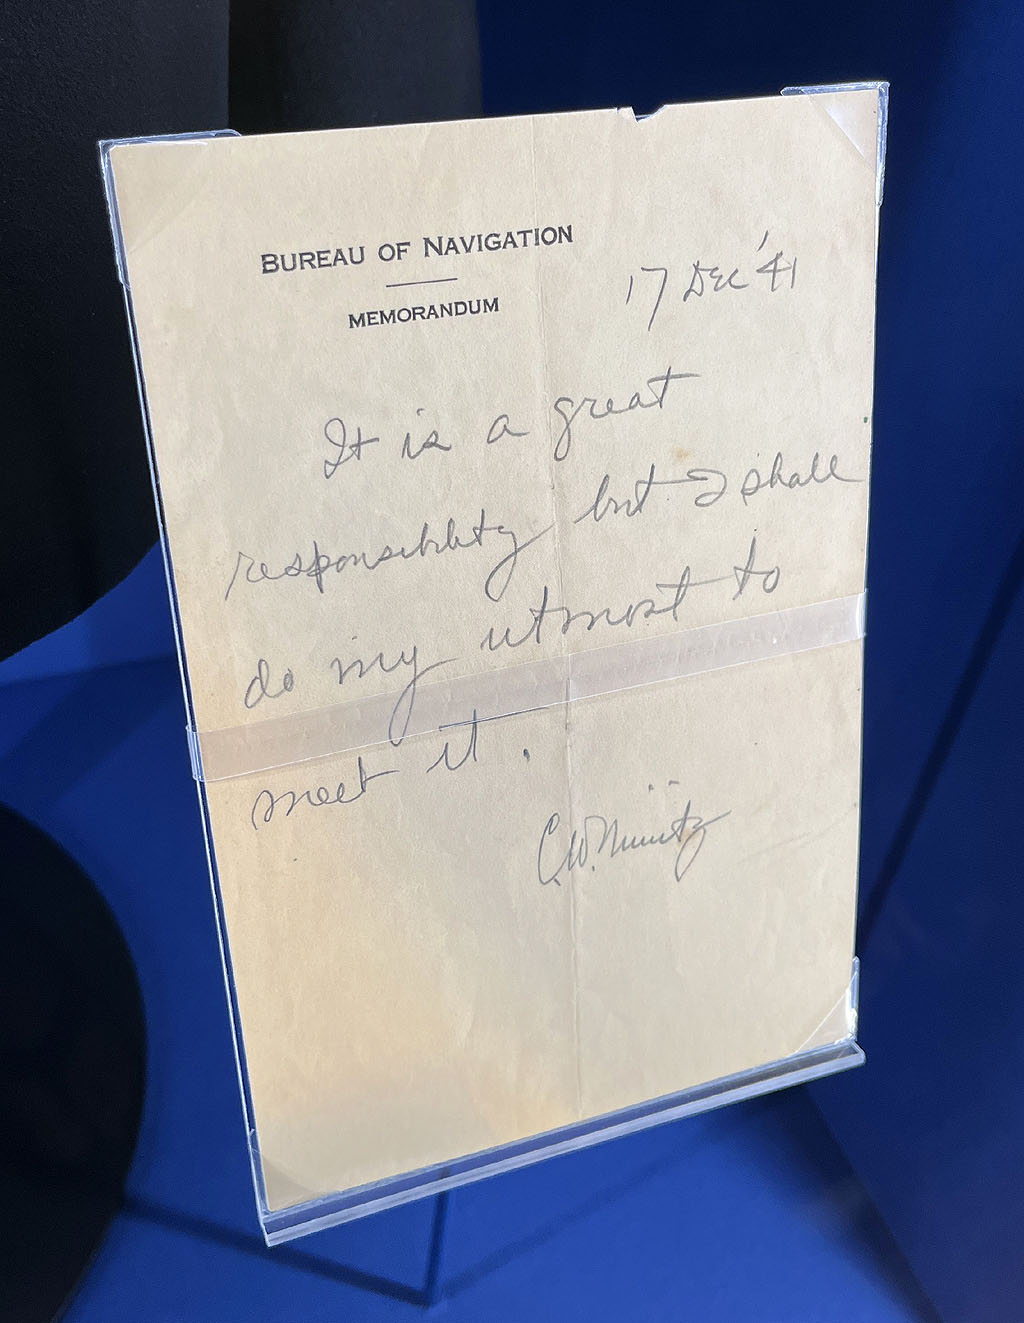 BUREAU OF NAVIGATION
MEMORANDUM
17 Dec '41
It is a great
responsibility but I shall
do my utmost to
meet it.
C.W. Nimitz